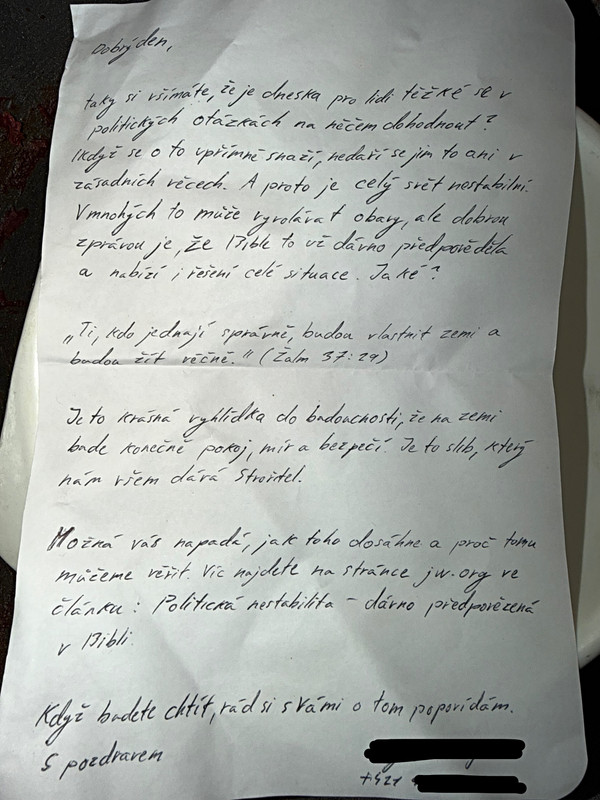 Dobrý den,
taky si všímáte, že je dneska pro lidi těžké se v
politických otázkách na něčem dohodnout?
Ikdyž se o to upřímně snaží, nedaří se jim to ani v
zásadních věcech. A proto je celý svět nestabilní.
V mnohých to může vyvolávat obavy, ale dobrou
zprávou je, že Bible to už dávno předpověděla
a nabízí i řešení celé situace. Jaké?
„Ti, kdo jednají správně, budou vlastnit zemi a
budou žít věčně." (Žalm 37:29)
Je to krásná vyhlídka do budoucnosti, že na zemi
bude konečně pokoj, mír a bezpečí. Je to slib, který
nám všem dává Stvořitel.
Možná vás napadá, jak toho dosáhne a proč tomu
můžeme věřit. Víc najdete na stránce jw.org ve
článku: Politická nestabilita - dávno předpovězená
v Bibli.
Když budete chtít, rád si s Vámi o tom popovídám.
S pozdravem
+421